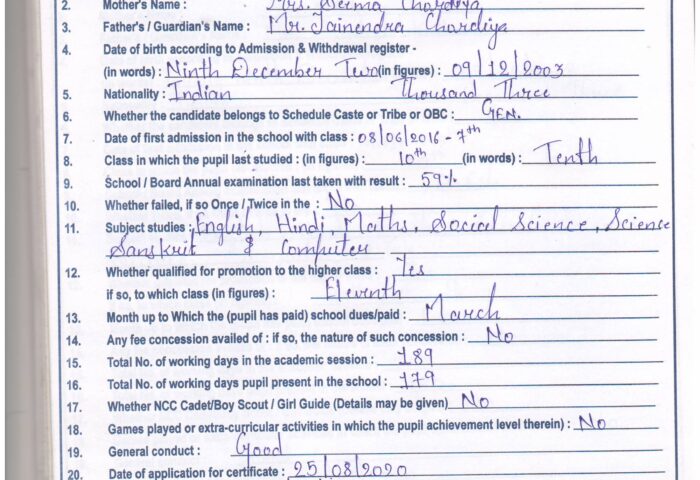 2. Mother's Name : Mrs. Seema Chordiya
3. Father's / Guardian's Name : Mr. Jainendra Chordiya
4. Date of birth according to Admission & Withdrawal register -
(in words) : Ninth December Two (in figures) : 09/12/2003
5. Nationality : Indian Thousand Three
6. Whether the candidate belongs to Schedule Caste or Tribe or OBC : GEN.
7. Date of first admission in the school with class : 08/06/2016 - 7th
8. Class in which the pupil last studied : (in figures) : 10th (in words) : Tenth
9. School / Board Annual examination last taken with result : 59%
10. Whether failed, if so Once / Twice in the : No
11. Subject studies : English, Hindi, Maths, Social Science, Science
Sanskrit & Computer
12. Whether qualified for promotion to the higher class : Yes
if so, to which class (in figures) : Eleventh
13. Month up to Which the (pupil has paid) school dues/paid : March
14. Any fee concession availed of : if so, the nature of such concession : No
15. Total No. of working days in the academic session : 189
16. Total No. of working days pupil present in the school : 179
17. Whether NCC Cadet/Boy Scout / Girl Guide (Details may be given) No
18. Games played or extra-curricular activities in which the pupil achievement level therein) : No
19. General conduct : Good
20. Date of application for certificate : 25/08/2020